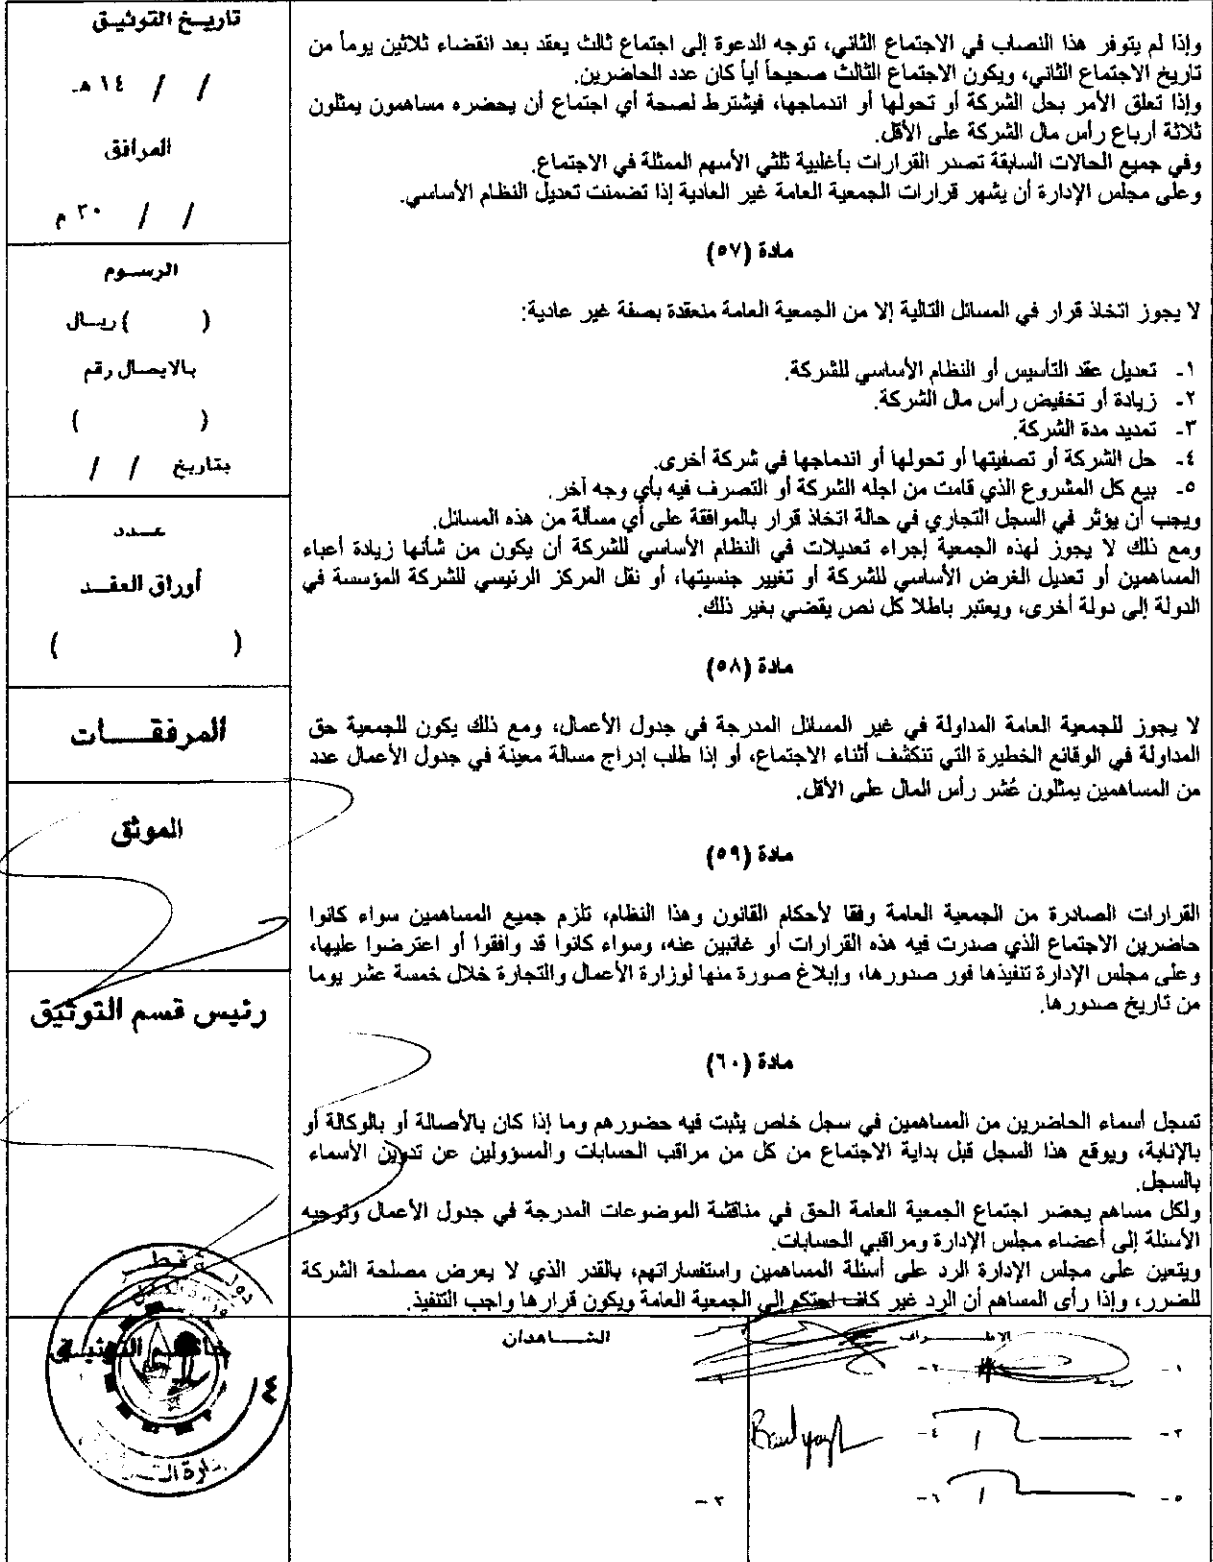 وإذا لم يتوفر هذا النصاب في الاجتماع الثاني، توجه الدعوة إلى اجتماع ثالث يعقد بعد انقضاء ثلاثين يوماً من
تاريخ الاجتماع الثاني، ويكون الاجتماع الثالث صحيحاً أياً كان عدد الحاضرين.
وإذا تعلق الأمر بحل الشركة أو تحولها أو اندماجها، فيشترط لصحة أي اجتماع أن يحضره مساهمون يمثلون
ثلاثة أرباع رأس مال الشركة على الأقل.
وفي جميع الحالات السابقة تصدر القرارات بأغلبية ثلثي الأسهم الممثلة في الاجتماع.
وعلى مجلس الإدارة أن يشهر قرارات الجمعية العامة غير العادية إذا تضمنت تعديل النظام الأساسي.
مادة (٥٧)
لا يجوز اتخاذ قرار في المسائل التالية إلا من الجمعية العامة منعقدة بصفة غير عادية:
١- تعديل عقد التأسيس أو النظام الأساسي للشركة.
٢- زيادة أو تخفيض رأس مال الشركة.
٣- تمديد مدة الشركة.
٤- حل الشركة أو تصفيتها أو تحولها أو اندماجها في شركة أخرى.
٥- بيع كل المشروع الذي قامت من اجله الشركة أو التصرف فيه بأي وجه آخر.
ويجب أن يؤثر في السجل التجاري في حالة اتخاذ قرار بالموافقة على أي مسألة من هذه المسائل.
ومع ذلك لا يجوز لهذه الجمعية إجراء تعديلات في النظام الأساسي للشركة أن يكون من شأنها زيادة أعباء
المساهمين أو تعديل الغرض الأساسي للشركة أو تغيير جنسيتها، أو نقل المركز الرئيسي للشركة المؤسسة في
الدولة إلى دولة أخرى، ويعتبر باطلا كل نص يقضي بغير ذلك.
مادة (٥٨)
لا يجوز للجمعية العامة المداولة في غير المسائل المدرجة في جدول الأعمال، ومع ذلك يكون للجمعية حق
المداولة في الوقائع الخطيرة التي تنكشف أثناء الاجتماع، أو إذا طلب إدراج مسالة معينة في جدول الأعمال عدد
من المساهمين يمثلون عُشر رأس المال على الأقل.
مادة (٥٩)
القرارات الصادرة من الجمعية العامة وفقا لأحكام القانون وهذا النظام، تلزم جميع المساهمين سواء كانوا
حاضرين الاجتماع الذي صدرت فيه هذه القرارات أو غائبين عنه، وسواء كانوا قد وافقوا أو اعترضوا عليها،
وعلى مجلس الإدارة تنفيذها فور صدورها، وإبلاغ صورة منها لوزارة الأعمال والتجارة خلال خمسة عشر يوما
من تاريخ صدورها.
مادة (٦٠)
تسجل أسماء الحاضرين من المساهمين في سجل خاص يثبت فيه حضورهم وما إذا كان بالأصالة أو بالوكالة أو
بالإنابة، ويوقع هذا السجل قبل بداية الاجتماع من كل من مراقب الحسابات والمسؤولين عن تدوين الأسماء
بالسجل.
ولكل مساهم يحضر اجتماع الجمعية العامة الحق في مناقشة الموضوعات المدرجة في جدول الأعمال وتوجيه
الأسئلة إلى أعضاء مجلس الإدارة ومراقبي الحسابات.
ويتعين على مجلس الإدارة الرد على أسئلة المساهمين واستفساراتهم، بالقدر الذي لا يعرض مصلحة الشركة
للضرر، وإذا رأى المساهم أن الرد غير كاف احتكم إلى الجمعية العامة ويكون قرارها واجب التنفيذ.
تاريـخ التوثيـق
/ / ١٤ هـ
الموافق
/ / ٢٠ م
الرسـوم
( ) ريـال
بـالايصـال رقـم
( )
بتاريخ / /
عـدد
أوراق العقـد
( )
المرفقـــات
الموثق
رئيس قسم التوثيق
خـاتـم التوثيـق
دولـة قطـر
الأطـــراف
١ -
٢ -
٣ -
٤ -
٥ -
٦ -
الشـــاهدان
١ -
٢ -